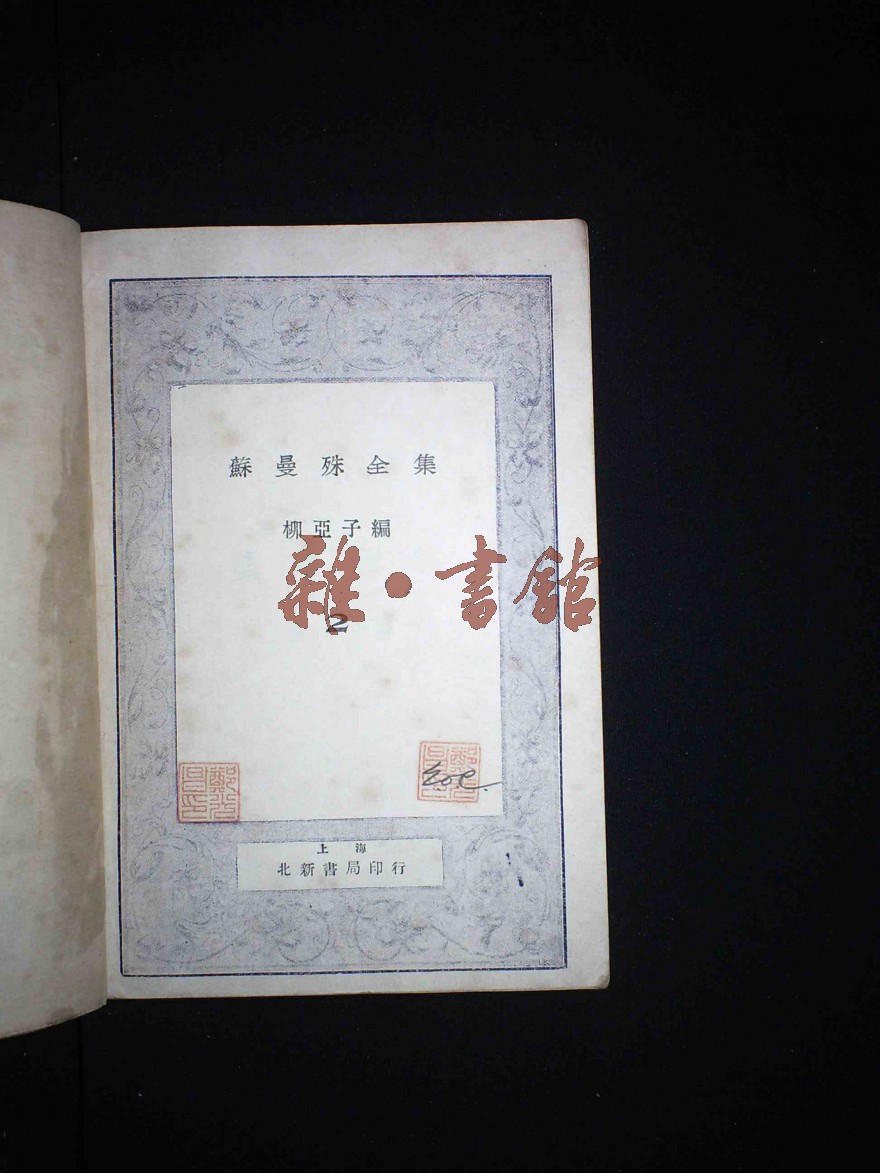 蘇曼殊全集
柳亞子編
雜·書館
2
上海
北新書局印行